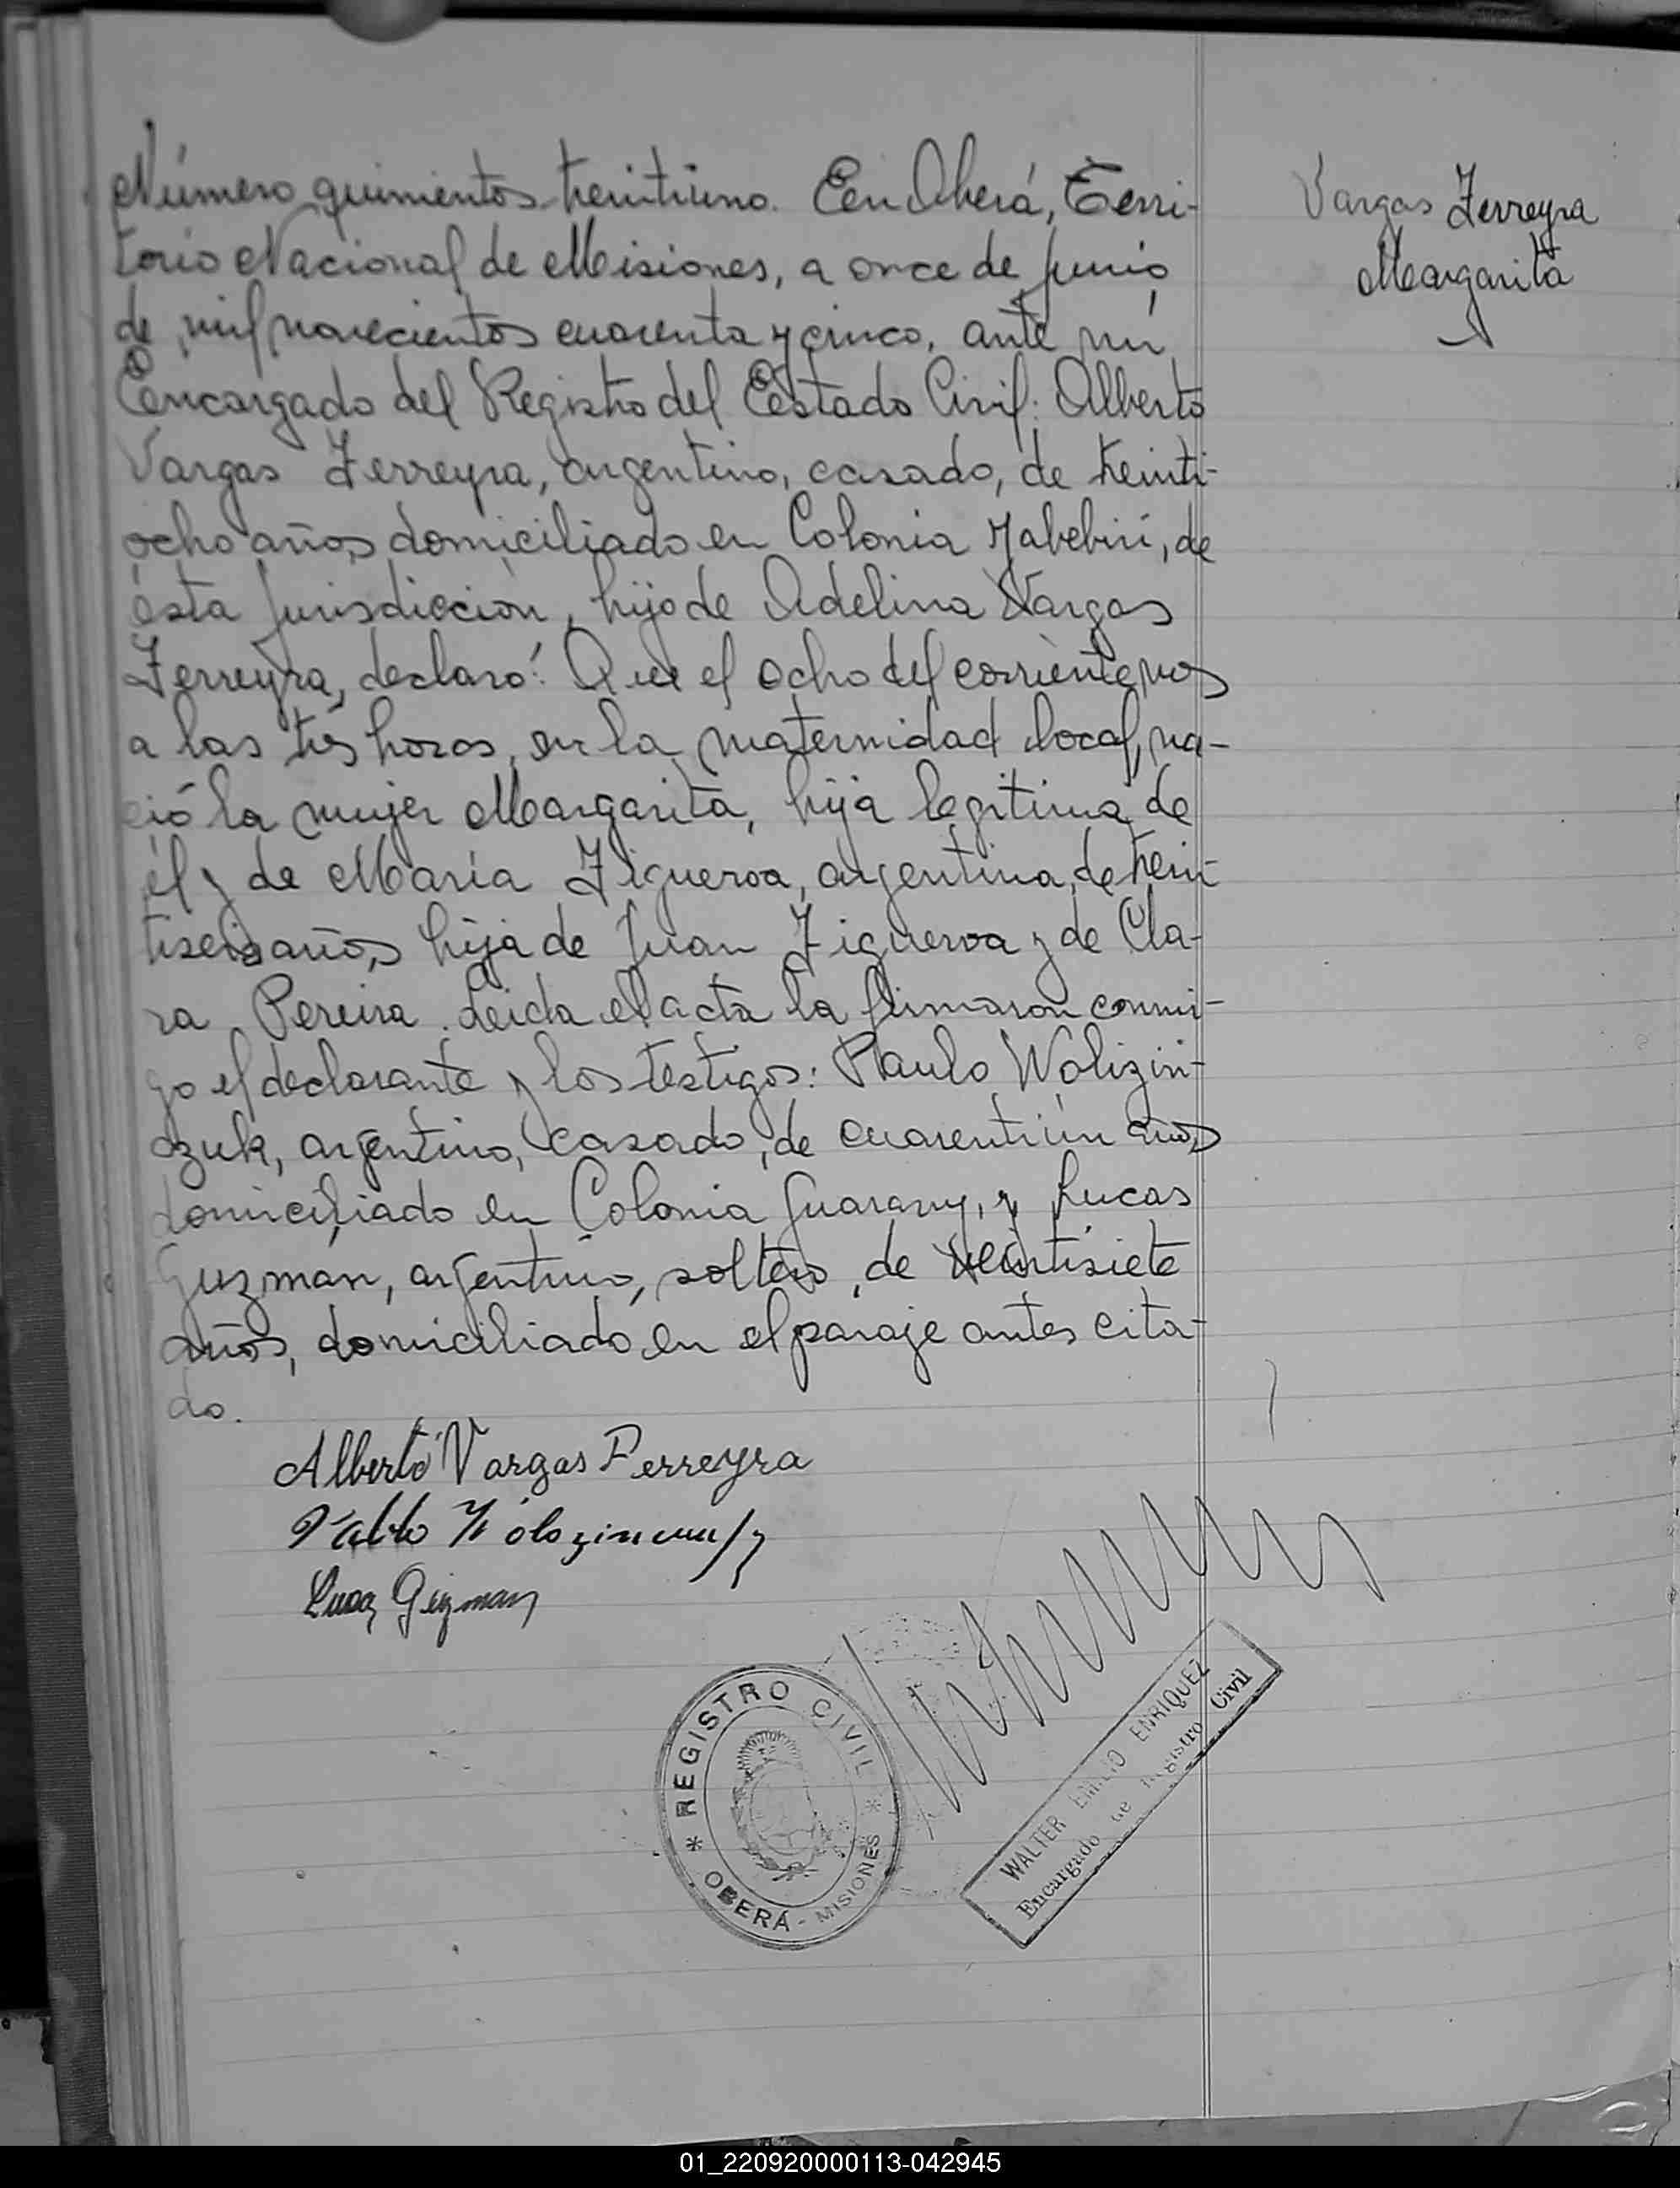 Número quinientos treintiuno. En Oberá, Terri-
torio Nacional de Misiones, a once de Junio
de mil novecientos cuarenta y cinco, ante mí
Encargado del Registro del Estado Civil: Alberto
Vargas Ferreyra, argentino, casado, de treinti-
ocho años domiciliado en Colonia Yabebirí, de
ésta jurisdicción, hijo de Adelina Vargas
Ferreyra, declaró: Que el ocho del corriente mes
a las tres horas, en la maternidad local, na-
ció la mujer Margarita, hija legítima de
él y de María Figueroa, argentina, de trein-
tiseis años, hija de Juan Figueroa y de Cla-
ra Pereira. Leida el acta la firmaron conmi-
go el declarante y los testigos: Paulo Wolizin-
czuk, argentino, casado, de cuarentiún años
domiciliado en Colonia Guarany, y Lucas
Guzmán, argentino, soltero, de veintisiete
años, domiciliado en el paraje antes cita-
do.
Vargas Ferreyra
Margarita
Alberto Vargas Ferreyra
Pablo
Lucas Guzman
REGISTRO CIVIL
OBERÁ - MISIONES
WALTER EMILIO ENRIQUEZ
Encargado de Registro Civil
01_220920000113-042945